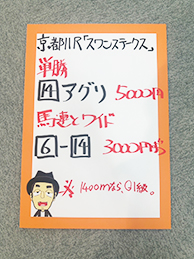 京都11R「スワンステークス」
単勝
14 アグリ 5000円
馬連とワイド
6-14 3000円づつ
※1400mなら、G1級。